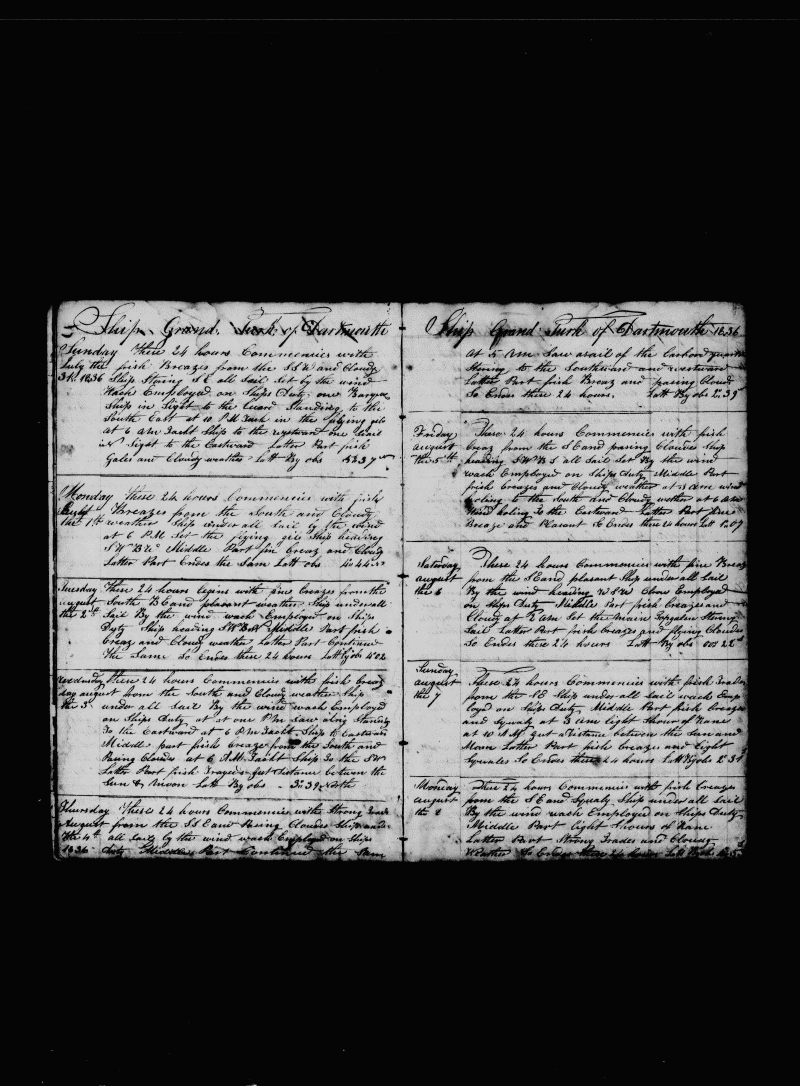 Ship Grand Turk of Dartmouth
Sunday These 24 hours Commencies with
July the frish Breazes from the SSE and Cloudy
31st 1836 Ship Stering SE all Sail Set by the wind
Wach Employed on Ships Duty one Barque
Ship in Sight to the Standing to the
South East at 10 PM in the jib
at 6 am Tackt Ship to the westward one Sail
in Sight to the Eastward Latter Part frish
Gales and Cloudy weather Latt By obs
Monday These 24 hours Commencies with frish
August Breazes from the South and Cloudy
the 1st weather Ship under all Sail by the wind
at 6 PM Set the Ship heading
SW B W Middle Part fin Breaz and Cloudy
Latter Part Endes the Sam Latt obs
Tuesday These 24 hours begins with fine breazes from the
August South B E and pleasant weather Ship under all
the 2nd Sail By the wind wach Employed on Ships
Duty Ship heading SWBW Middle Part frish
Breaz and Cloudy weather Latter Part Continue
The Same So Endes these 24 hours Latt by obs 4°02
Wednesday these 24 hours Commencies with frish breaz
day august from the South and Cloudy weather Ship
the 3 under all Sail By the wind wach Employed
on Ships Duty at one PM Saw
To the Eastward at 6 PM Tackt Ship to Eastward
Middle part frish breaze from the South and
Pasing Cloudes at 6 AM Tackt Ship To the SW
Latter Part frish distance between the
Sun & Moon Latt By obs 3°39 North
Thursday These 24 hours Commencies with Strong
August from the SSE and Pasing Cloudes Ship under
the 4th all Sail by the wind wach Employed on Ships
1836 Duty Middle Part Continued the Sam
Ship Grand Turk of Dartmouth 1836
at 5 Am Saw a sail of the Larbord quarter
Stering to the Southward and westward
Latter Part frish Breaz and pasing Cloudes
So Endes these 24 hours. Latt By obs 2°39
Friday These 24 hours Commencies with frish
august breaz from the SE and pasing Cloudes Ship
the 5th heading SWBS all Sail Set By the wind
wach Employed on Ships Duty Middle Part
frish breazes and Cloudy weather at 3 am wind
to the South and Cloudy wether at 6 Am
Wind to the Eastward Latter Part fine
Breaze and Plasant So Endes these 24 hours Latt 1°07
Saturday These 24 hours Commencies with fine Breaz
august from the SE and plasant Ship under all Sail
the 6 By the wind heading WSW Crew Employed
on Ships Duty Middle Part frish breazes and
Cloudy at 2 Am Set the Main Topgalon Stering
Sail Latter Part frish breazes and flying Cloudes
So Endes these 24 hours Latt By obs 00°22
Sunday These 24 hours Commencies with frish
august from the SE Ship under all Sail wach Emp
the 7 loyed on Ships Duty Middle Part frish breazes
and Squaly at 3 am light Shour of Rane
at 10 AM gut a Distance between the Sun and
Moon Latter Part frish breazes and light
Squales So Endes these 24 hours Latt By obs
Monday These 24 hours Commencies with frish breazes
august from the SE and Squaly Ship under all Sail
the 8 By the wind wach Employed on Ships Duty
Middle Part light Shours of Rane
Latter Part Strong Trades and Cloudy
Weather So Endes these 24 hours Latt By obs